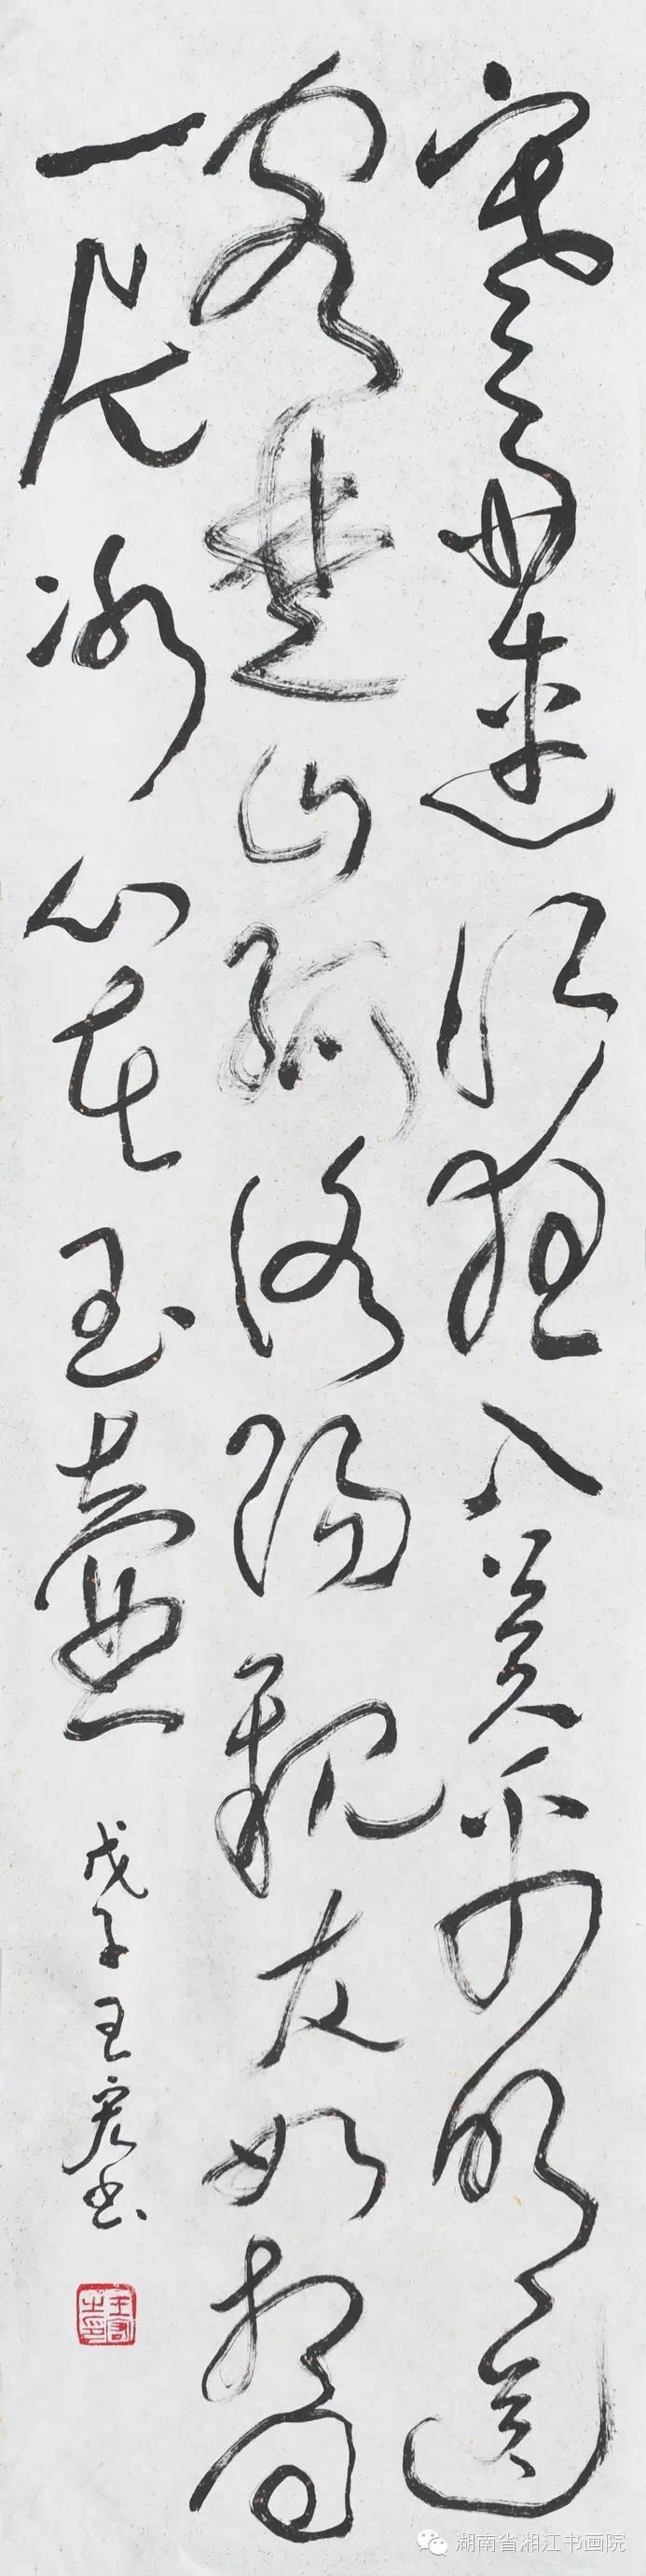 寒雨連江夜入吴平明送
客楚山孤洛陽親友如相問
一片冰心在玉壺
戊子王宏书
湖南省湘江书画院